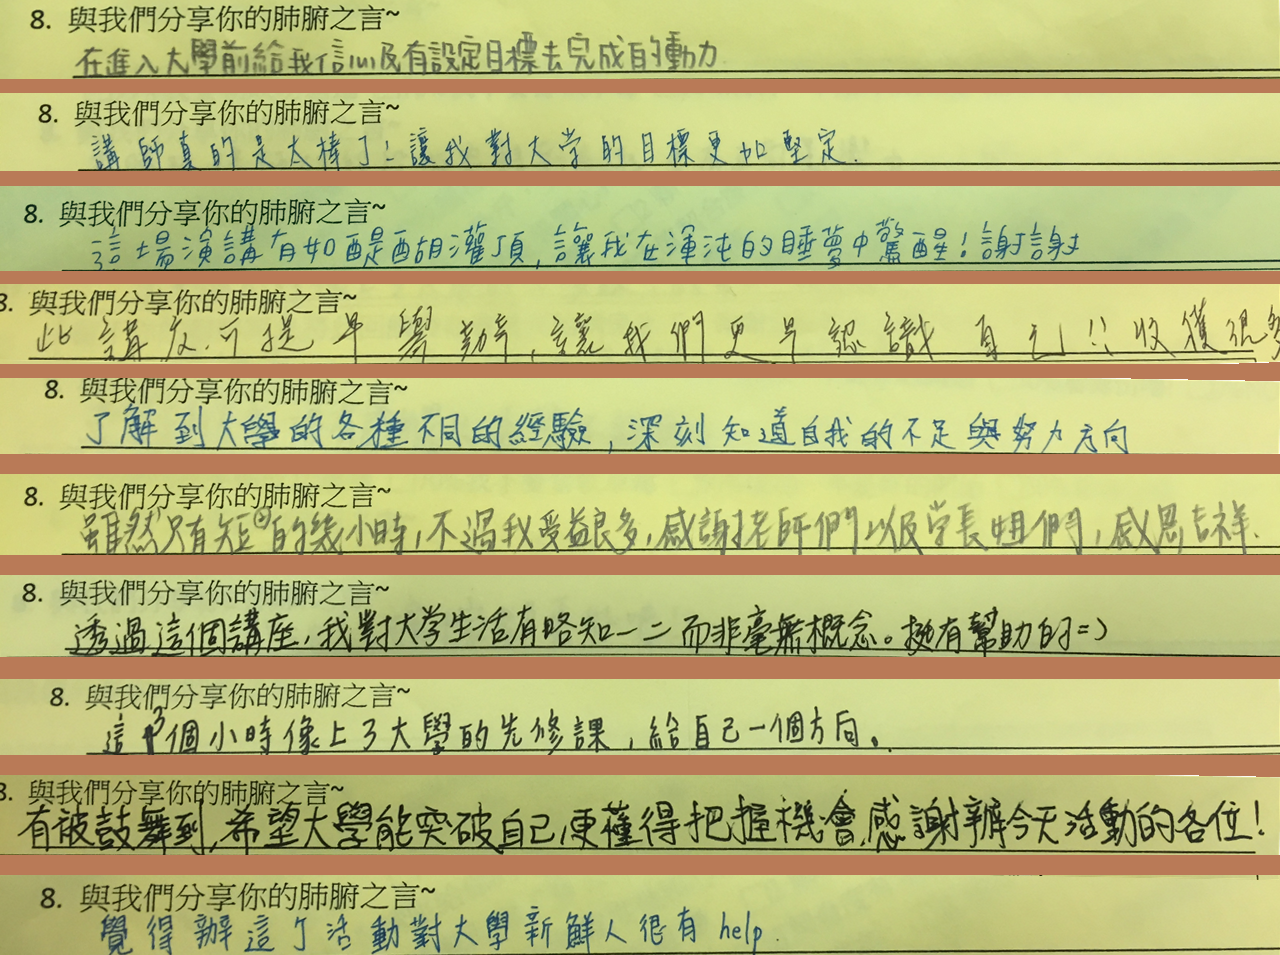 8. 與我們分享你的肺腑之言~
在進入大學前給我信心及有設定目標去完成的動力
8. 與我們分享你的肺腑之言~
講師真的是太棒了!讓我對大学的目標更加堅定.
8. 與我們分享你的肺腑之言~
這場演講有如醍醐灌頂,讓我在渾沌的睡夢中驚醒!謝謝
8. 與我們分享你的肺腑之言~
此講座可提早響動,讓我們更早認識自己!!收獲很多
8. 與我們分享你的肺腑之言~
了解到大學的各種不同的經驗,深刻知道自我的不足與努力方向
8. 與我們分享你的肺腑之言~
雖然只有短的幾小時,不過我受益良多,感謝老師們以及学長姐們,感恩吉祥.
8. 與我們分享你的肺腑之言~
透過這個講座,我對大学生活有略知一二而非毫無概念。挺有幫助的=)
8. 與我們分享你的肺腑之言~
這3個小時像上了大學的先修課,給自己一個方向。
8. 與我們分享你的肺腑之言~
有被鼓舞到,希望大學能突破自己,更懂得把握機會,感謝辦今天活動的各位!
8. 與我們分享你的肺腑之言~
覺得辦這个活動對大學新鮮人很有 help.